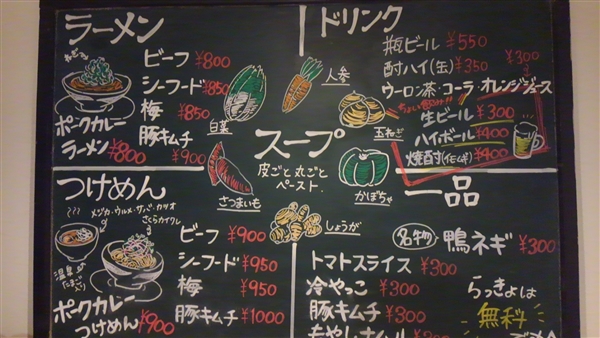 ラーメン
ねぎ
ビーフ ¥800
シーフード ¥850
梅 ¥850
豚キムチ ¥900
ポークカレー
ラーメン ¥800
つけめん
???
メジカ・ウルメ・サバ・カツオ
さくらカイワレ
温泉
たまご
ビーフ ¥900
シーフード ¥950
梅 ¥950
豚キムチ ¥1000
ポークカレー
つけめん ¥900
スープ
皮ごと丸ごと
ペースト
白菜
人参
玉ねぎ
さつまいも
かぼちゃ
しょうが
ドリンク
瓶ビール ¥550
酎ハイ(缶) ¥350
¥300
ウーロン茶・コーラ・オレンジジュース
生ビール ¥300
ハイボール ¥400
焼酎(イモ・ムギ) ¥400
一品
名物 鴨ネギ ¥300
トマトスライス ¥300
冷やっこ ¥300
豚キムチ ¥300
らっきょは
無料